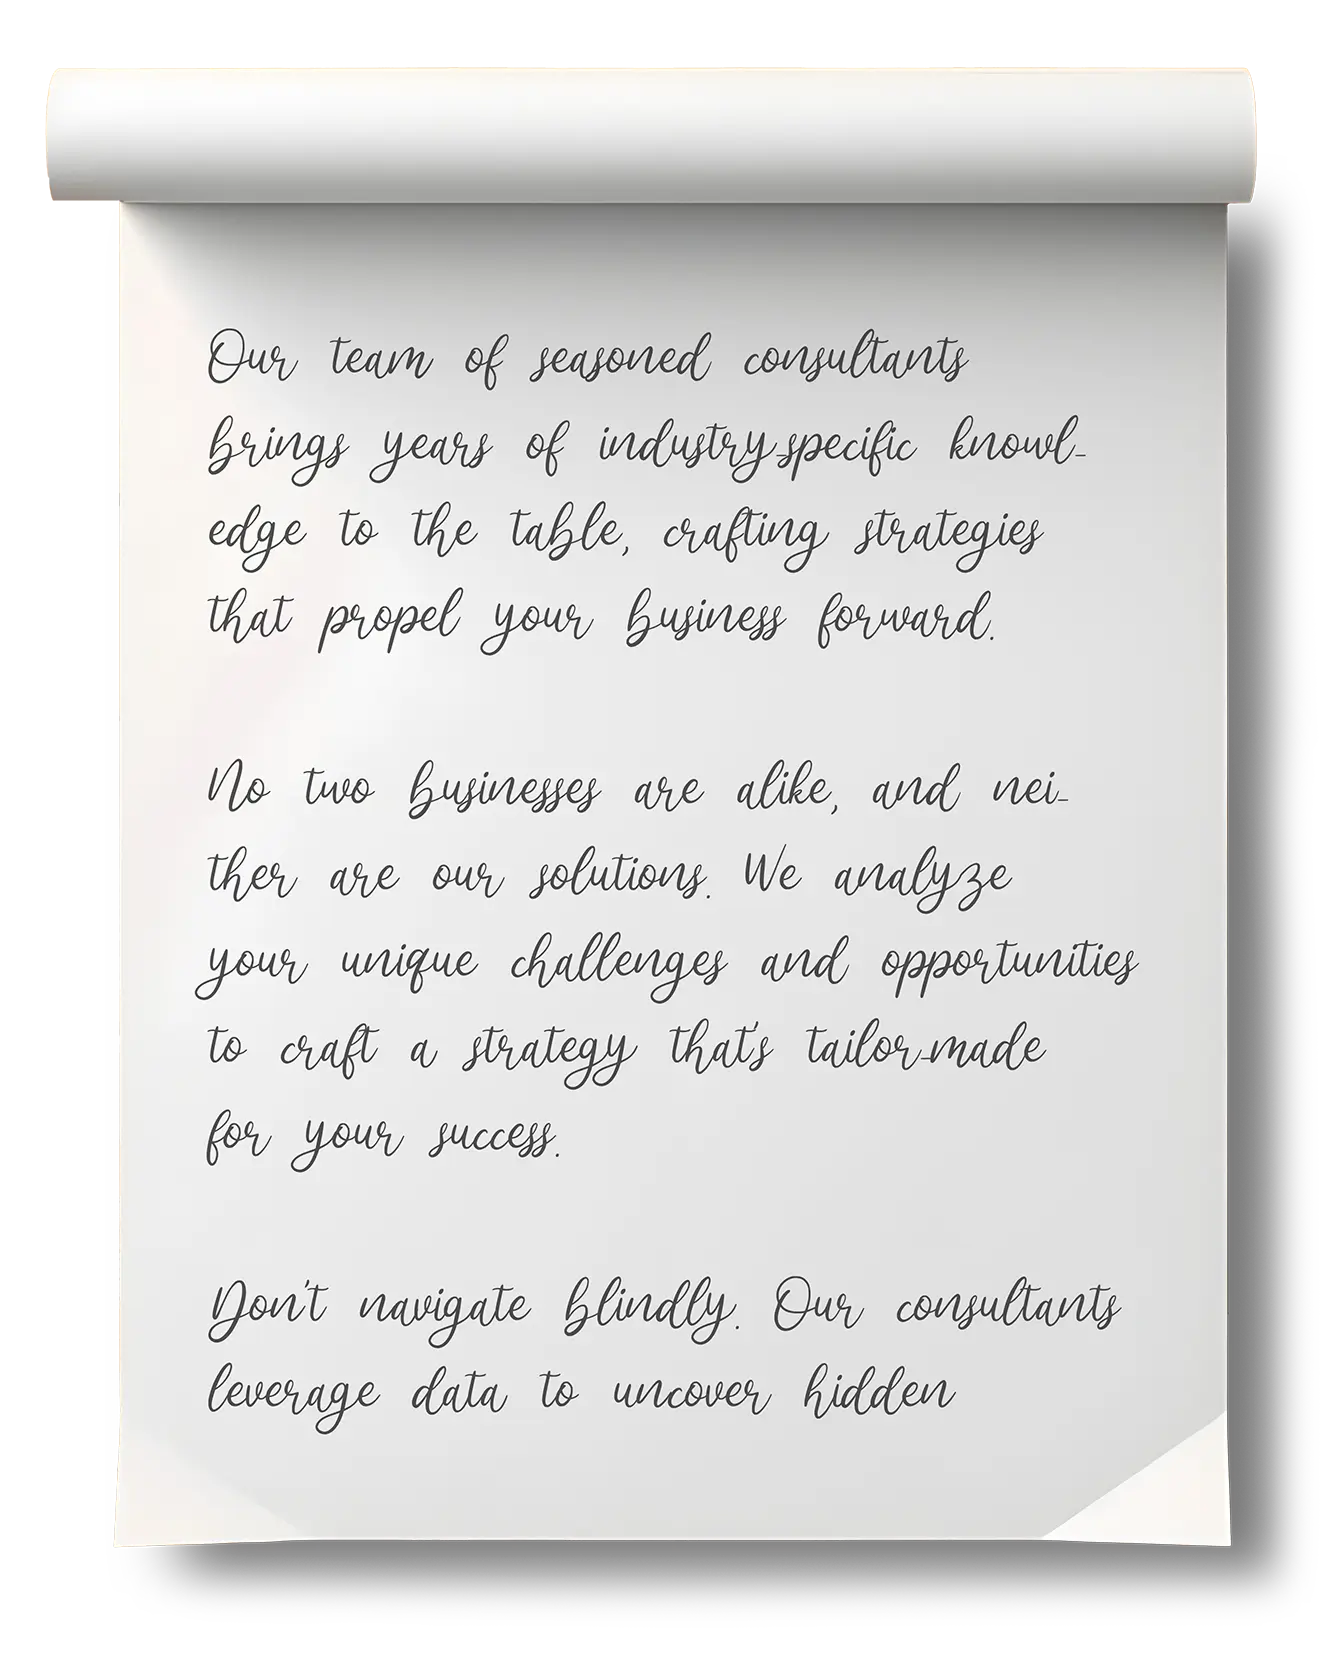 Our team of seasoned consultants
brings years of industry-specific knowl-
edge to the table, crafting strategies
that propel your business forward.
No two businesses are alike, and nei-
ther are our solutions. We analyze
your unique challenges and opportunities
to craft a strategy that's tailor-made
for your success.
Don't navigate blindly. Our consultants
leverage data to uncover hidden